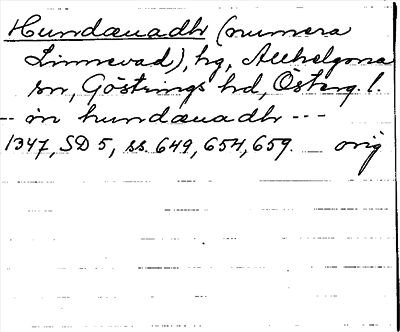 Hundæuadhr (numera
Linnevad), hg, Allhelgona
sn, Göstrings hd, Österg. l.
-- in hundæuadhr ---
1347, SD 5, ss. 649, 654, 659. orig